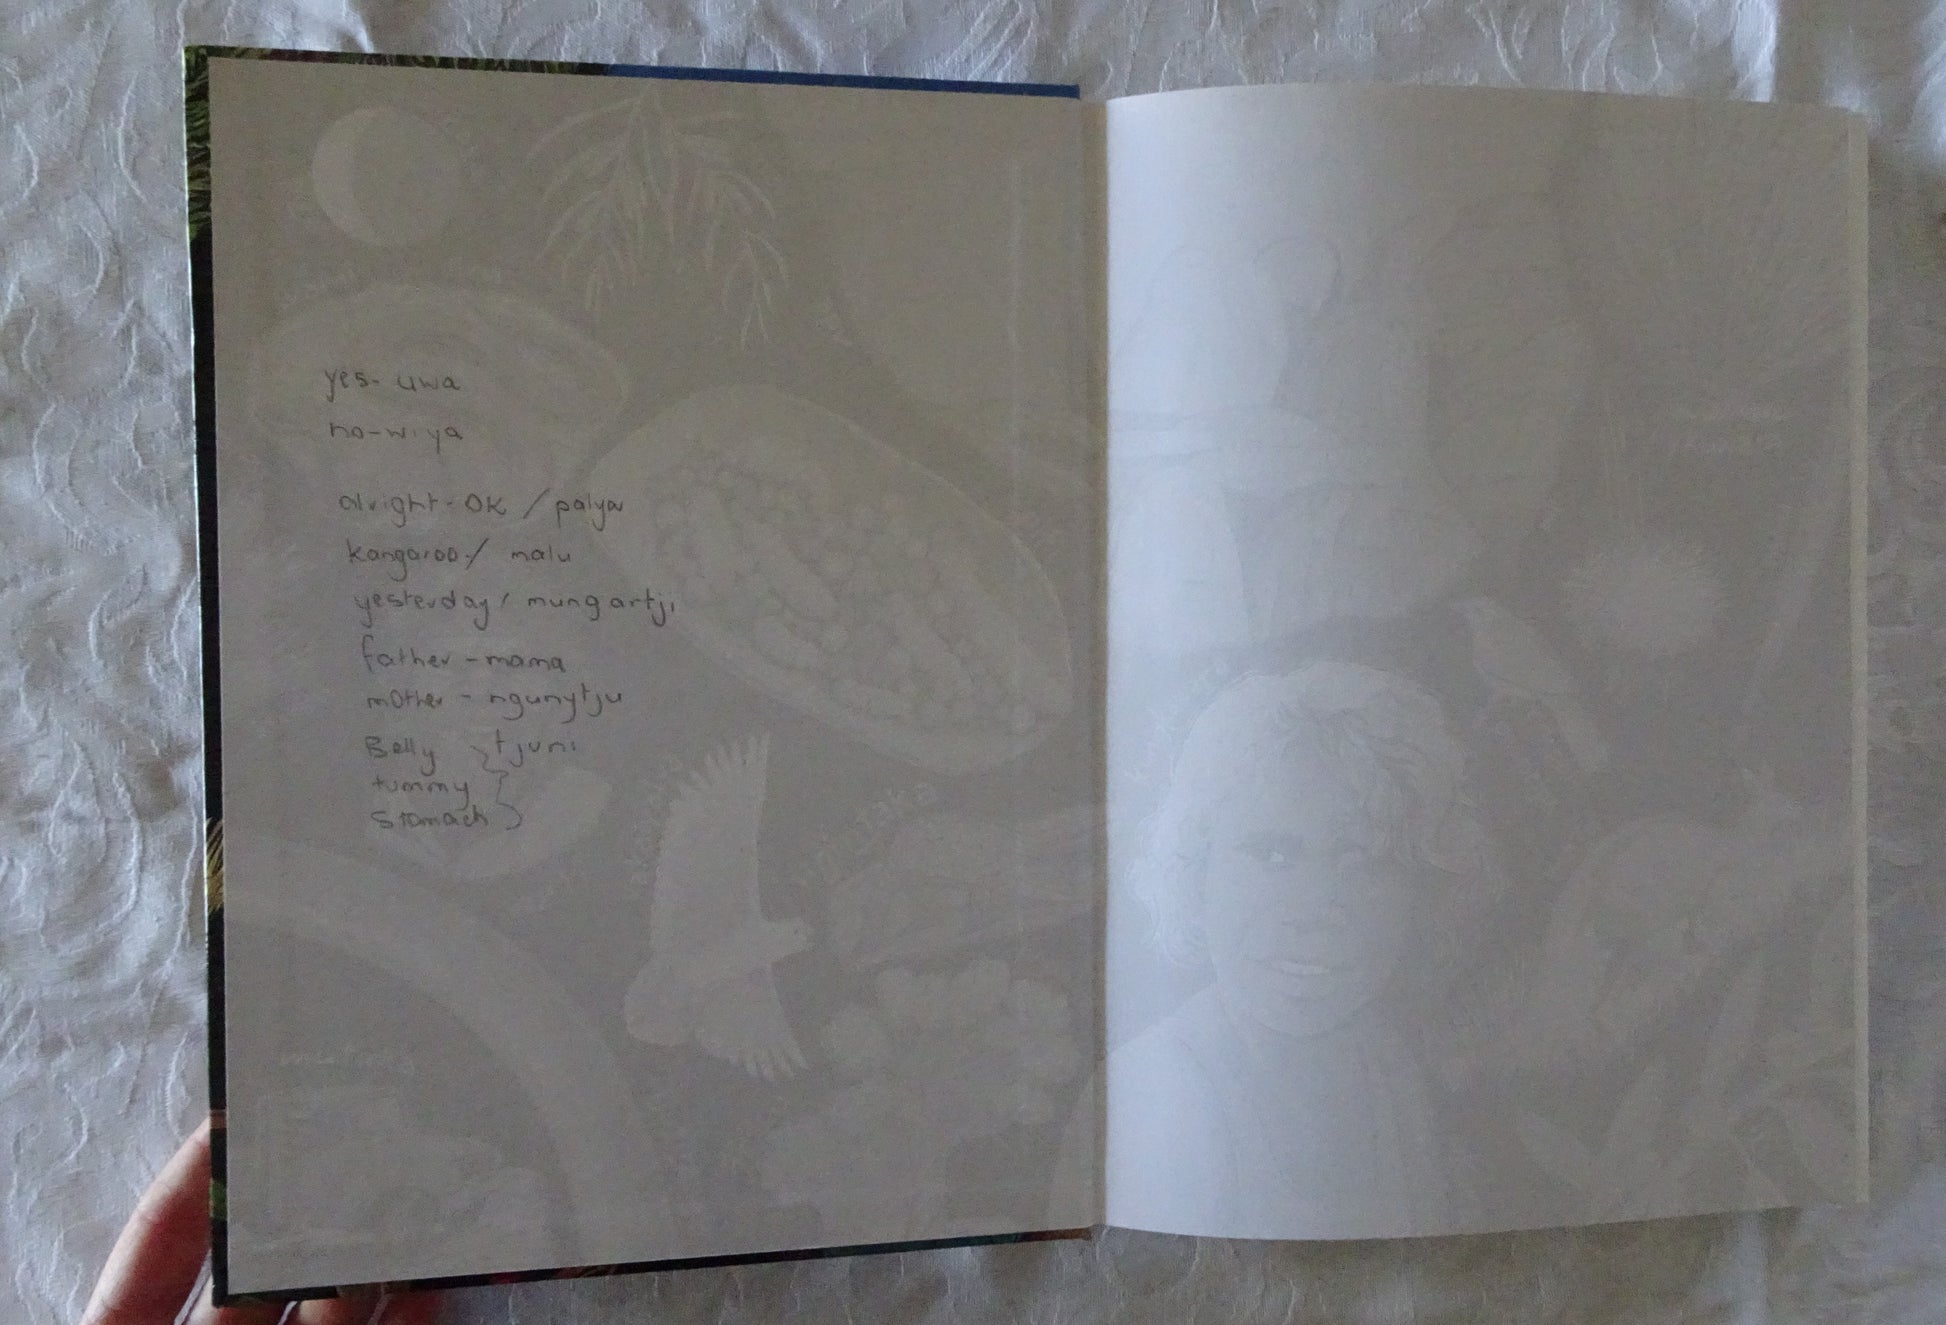 yes- uwa
no-wiya
alright-OK / palya
kangaroo-/ malu
yesterday/ mungartji
father-mama
mother - ngunytju
Belly } tjuni
tummy
Stomach }